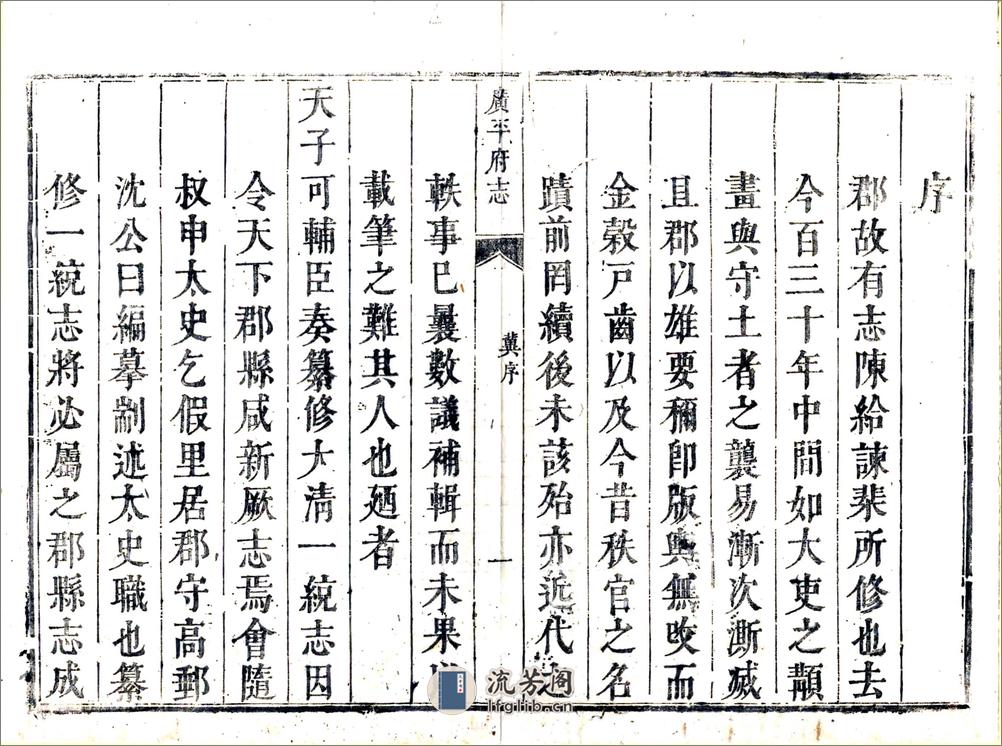 序
郡故有志陳給諫棐所修也去
今百三十年中間如大吏之顓
畫與守土者之襲易漸次漸滅
且郡以雄要稱即版輿無改而
金穀戸齒以及今昔秩官之名
蹟前罔續後未該殆亦近代之
廣平府志
冀序
一
軼事巳曩數議補輯而未果
載筆之難其人也廼者
天子可輔臣奏纂修大清一統志因
令天下郡縣咸新厥志焉會隨
叔申太史乞假里居郡守高郵
沈公曰編摹剬述太史職也纂
修一統志將必屬之郡縣志成
流芳阁
lfglib.cn